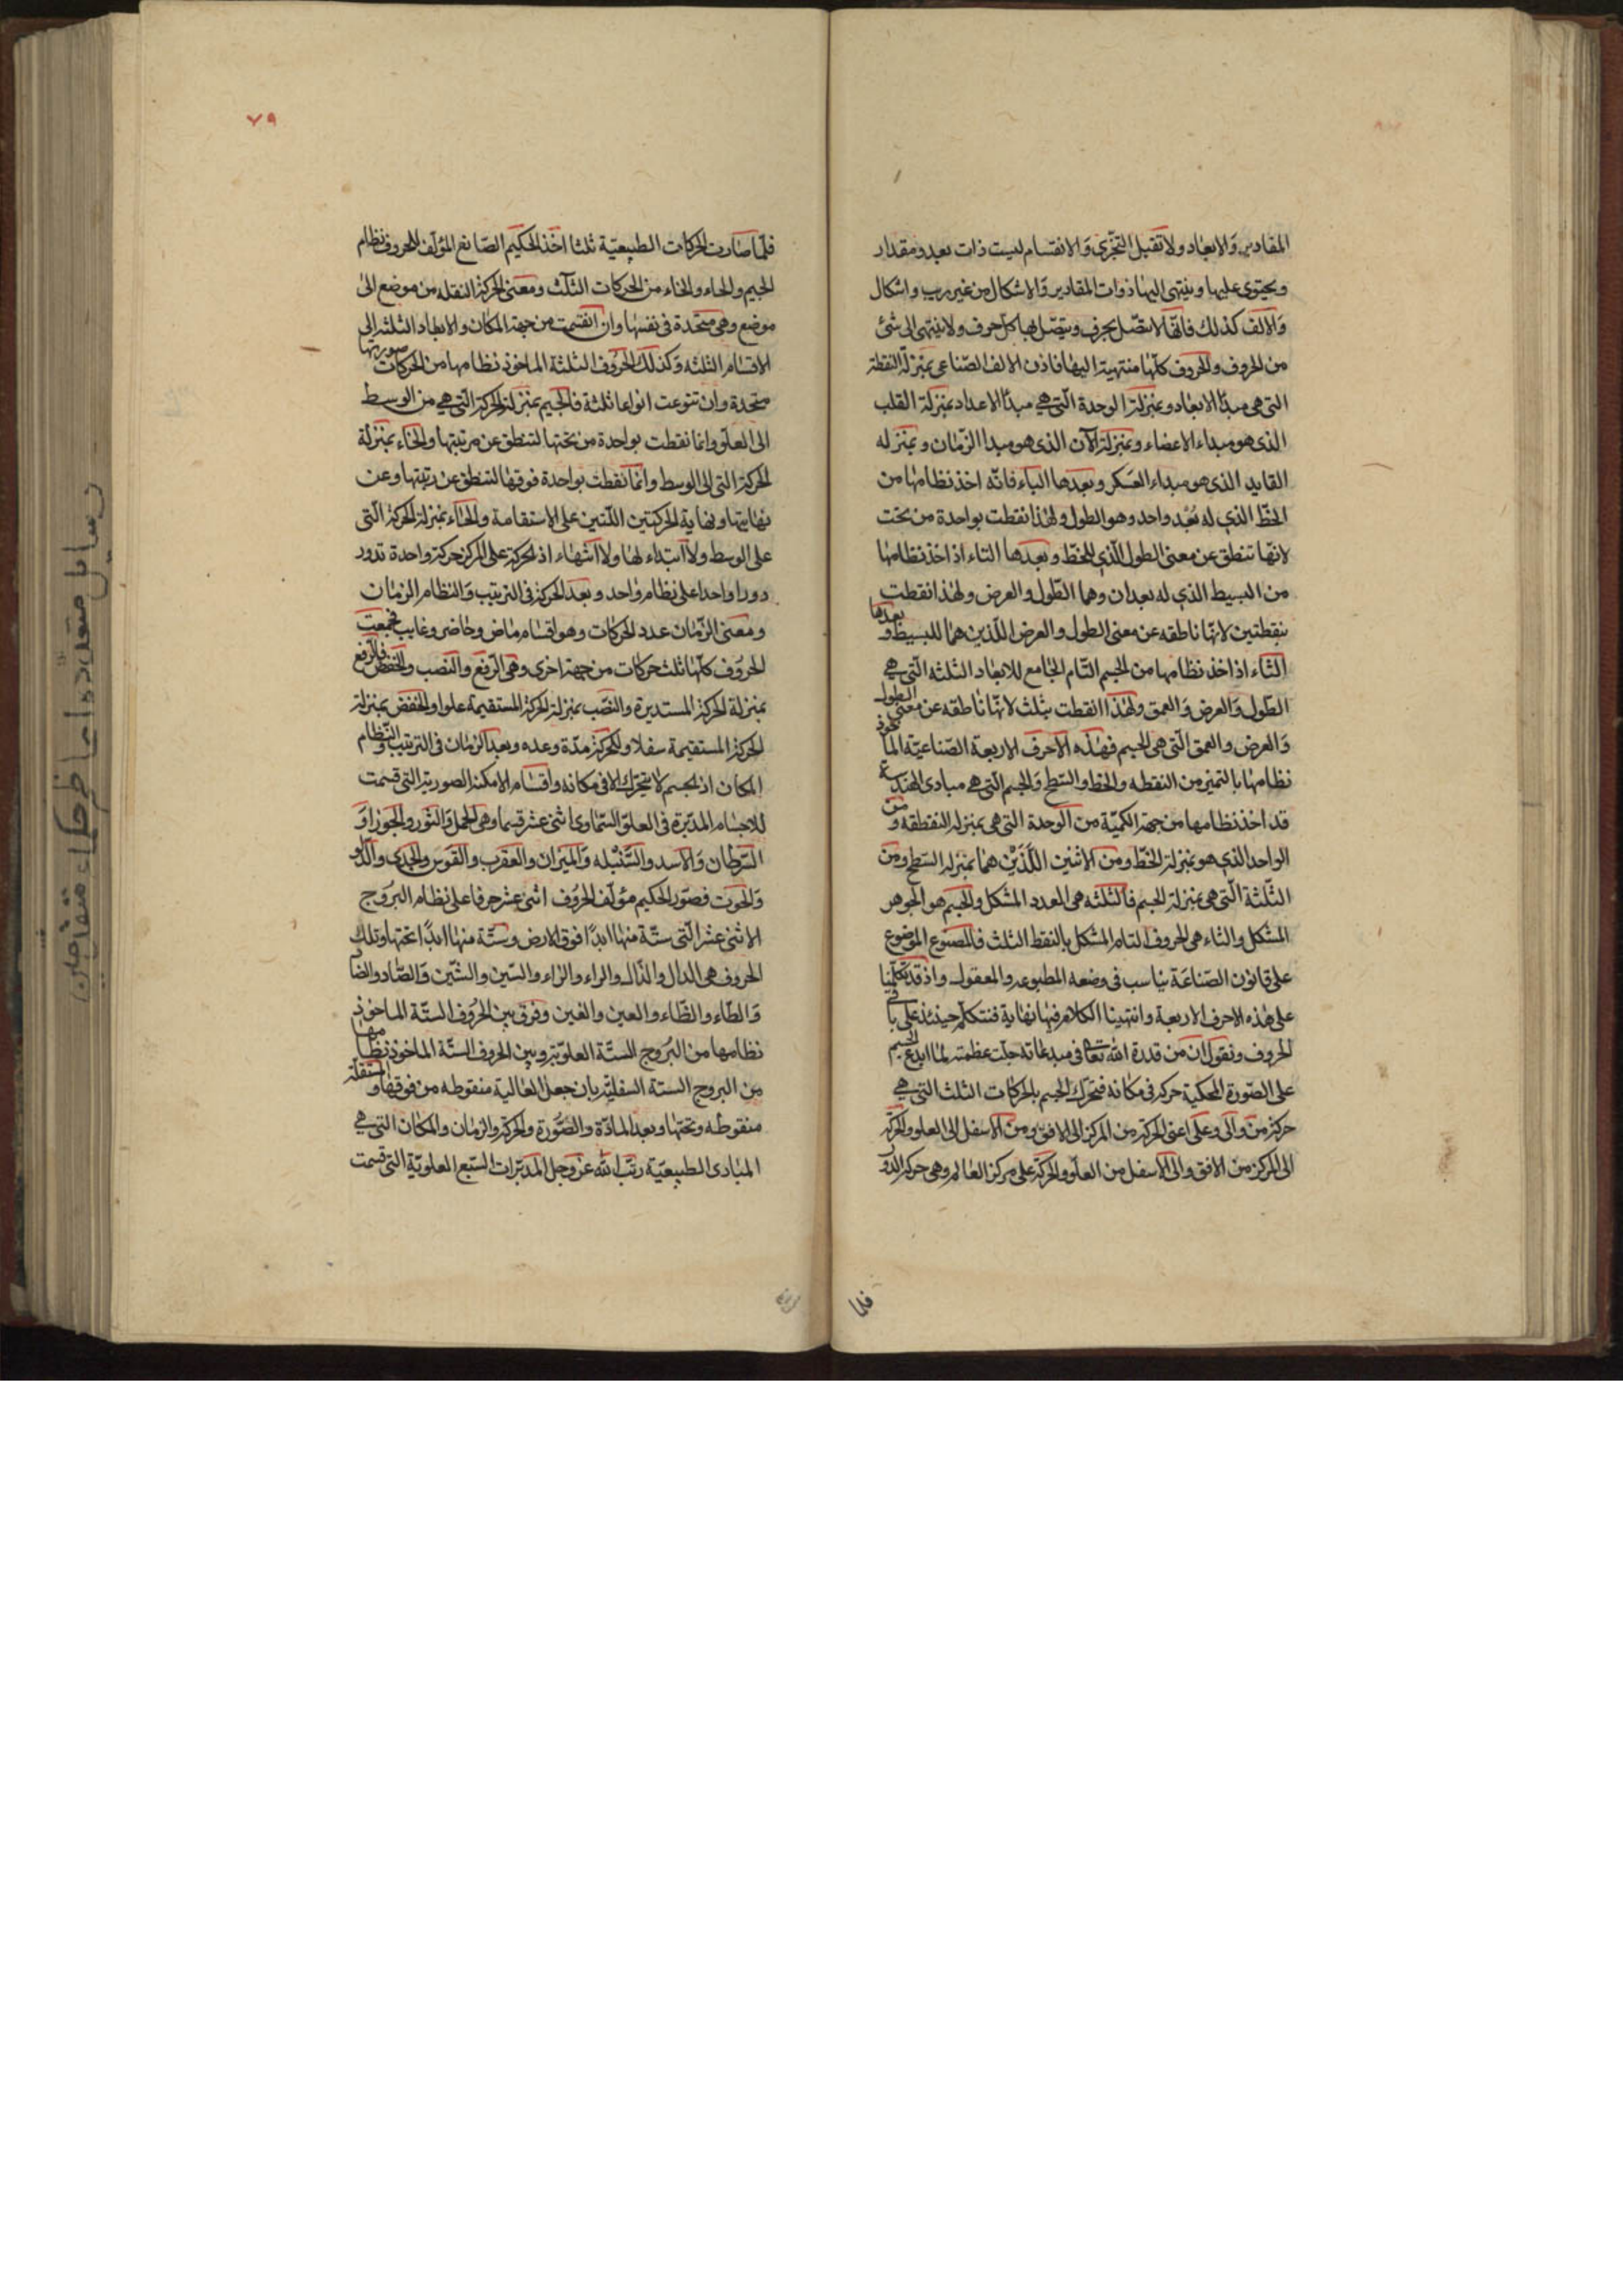 المقادير والابعاد ولا تقبل التجزى والانقسام ليست ذات بعد ومقدار
ويحتوى عليها وينتهى اليها ذوات المقادير والاشكال من غير ريب واشكال
والالف كذلك فانها لا تتصل بحرف ويتصل بها كل حرف ولا ينتهى الى شئ
من الحروف والحروف كلها منتهية اليها فاذن الالف الصناعى بمنزلة النقطة
التى هى مبدأ الابعاد وبمنزلة الوحدة التى هى مبدأ الاعداد بمنزلة القلب
الذى هو مبداء الاعضاء وبمنزلة الآن الذى هو مبدا الزمان وبمنزله
القايد الذى هو مبداء العسكر وبعدها الباء فانه اخذ نظامها من
الخط الذى له بُعْد واحد وهو الطول ولهذا نقطت بواحدة من تحت
لانها تنطق عن معنى الطول الذى للخط وبعدها التاء اذ اخذ نظامها
من البسيط الذى له بعدان وهما الطول والعرض ولهذا نقطت
بنقطتين لانها ناطقه عن معنى الطول والعرض اللذين هما للبسيط وبعدها
الثاء اذ اخذ نظامها من الجسم التام الجامع للابعاد الثلثه التى هى
الطول والعرض والعمق ولهذا نقطت بثلث لانها ناطقه عن معنى الطول
والعرض والعمق التى هى الجسم فهذه الاحرف الاربعة الصناعيه الماخوذ
نظامها بالتميز من النقطه والخط والسطح والجسم التى هى مبادى الهندسة
قد اخذ نظامها من جهة الكمية من الوحدة التى هى بمنزله النقطقه ومن
الواحد الذى هو بمنزلة الخط ومن الاثنين اللذين هما بمنزله السطح ومن
الثلثة التى هى بمنزلة الجسم فالثلثه هى العدد المشكل والجسم هو الجوهر
المشكل والثاء هى الحروف التام المشكل بالنقط الثلث فالمصنوع الموضوع
على قانون الصناعة يناسب فى وضعه المطبوع والمعقول واذ قد تكلمنا
على هذه الاحرف الاربعة وانتهينا الكلام فيها نهاية فنتكلم حينئذ على باقى
الحروف ونقول ان من قدرة الله تعالى فى مبدعاته جلت عظمته لما ابدع الجسم
على الصورة المحكية حركه فى مكانه فتحرك الجسم بالحركات الثلث التى هى
حركة من والى وعلى اعنى الحركة من المركز الى الافق ومن الاسفل الى العلو والحركة
الى المركز من الافق والى الاسفل من العلو والحركة على مركز العالم وهى حركة الدور
فلما
٧٩
فلما صارت الحركات الطبيعية ثلثا اخذ الحكيم الصانع المؤلف للحروف نظام
الجيم والحاء والخاء من الحركات الثلث ومعنى الحركة النقله من موضع الى
موضع وهى متحدة فى نفسها وان انقسمت من جهة المكان والابعاد الثلثة الى
الاقسام الثلثه وكذلك الحروف الثلثة الماخوذ نظامها من الحركات صورتها
متحدة وان تنوعت انواعا ثلثة فالجيم بمنزلة الحركة التى هى من الوسط
الى العلو وانما نقطت بواحدة من تحتها لتنطق عن مرتبتها والخاء بمنزلة
الحركة التى الى الوسط وانما نقطت بواحدة فوقها لتنطق عن رتبتها وعن
نهايتها ونهاية الحركتين اللتين على الاستقامة والحاء بمنزلة الحركة التى
على الوسط ولا ابتداء لها ولا انتهاء اذ الحركة على المركز حركة واحدة تدور
دورا واحدا على نظام واحد وبعد الحركة فى الترتيب والنظام الزمان
ومعنى الزمان عدد الحركات وهو اقسام ماض وحاضر وغايب فجمعت
الحروف كلها ثلث حركات من جهة اخرى وهى الرفع والنصب والخفض فالرفع
بمنزلة الحركة المستديرة والنصب بمنزلة الحركة المستقيمة علوا والخفض بمنزلة
الحركة المستقيمة سفلا وللحركة مدة وعده وبعد الزمان فى الترتيب والنظام
المكان اذ الجسم لا يتحرك الا فى مكانه واقسام الامكنة الصورية التى قسمت
للاجسام المدبرة فى العلو السماوى اثنى عشر قسما وهى الحمل والثور والجوزا و
السرطان والاسد والسنبله والميزان والعقرب والقوس والجدى والدلو
والحوت فصور الحكيم مؤلف الحروف اثنى عشر حرفا على نظام البروج
الاثنى عشر التى ستة منها ابدا فوق الارض وستة منها ابدا تحتها وتلك
الحروف هى الدال والذال والراء والزاء والسين والشين والصاد والضاد
والطاء والظاء والعين والغين وفرق بين الحروف الستة الماخوذ
نظامها من البروج الستة العلوية وبين الحروف الستة الماخوذ نظامها
من البروج الستة السفلية بان جعل العالية منقوطه من فوقها والسفلة
منقوطه وتحتها وبعد المادة والصورة والحركة والزمان والمكان التى هى
المبادى الطبيعية رتب الله عز وجل المدبرات السبع العلوية التى قسمت